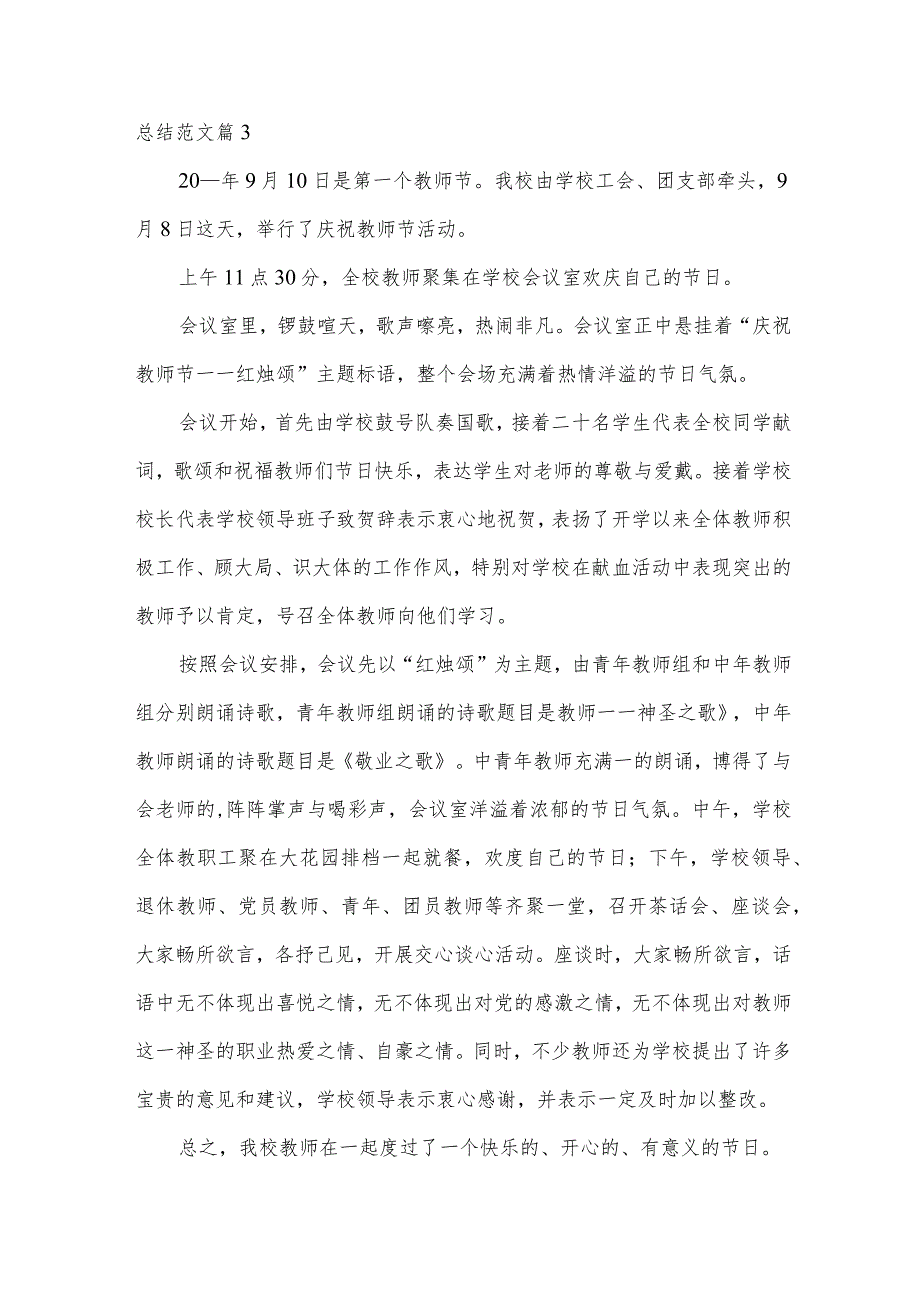 总结范文篇3
20—年9月10日是第一个教师节。我校由学校工会、团支部牵头，9
月8日这天，举行了庆祝教师节活动。
上午11点30分，全校教师聚集在学校会议室欢庆自己的节日。
会议室里，锣鼓喧天，歌声嘹亮，热闹非凡。会议室正中悬挂着“庆祝
教师节一一红烛颂”主题标语，整个会场充满着热情洋溢的节日气氛。
会议开始，首先由学校鼓号队奏国歌，接着二十名学生代表全校同学献
词，歌颂和祝福教师们节日快乐，表达学生对老师的尊敬与爱戴。接着学校
校长代表学校领导班子致贺辞表示衷心地祝贺，表扬了开学以来全体教师积
极工作、顾大局、识大体的工作作风，特别对学校在献血活动中表现突出的
教师予以肯定，号召全体教师向他们学习。
按照会议安排，会议先以“红烛颂”为主题，由青年教师组和中年教师
组分别朗诵诗歌，青年教师组朗诵的诗歌题目是教师一一神圣之歌》，中年
教师朗诵的诗歌题目是《敬业之歌》。中青年教师充满一的朗诵，博得了与
会老师的,阵阵掌声与喝彩声，会议室洋溢着浓郁的节日气氛。中午，学校
全体教职工聚在大花园排档一起就餐，欢度自己的节日；下午，学校领导、
退休教师、党员教师、青年、团员教师等齐聚一堂，召开茶话会、座谈会，
大家畅所欲言，各抒己见，开展交心谈心活动。座谈时，大家畅所欲言，话
语中无不体现出喜悦之情，无不体现出对党的感激之情，无不体现出对教师
这一神圣的职业热爱之情、自豪之情。同时，不少教师还为学校提出了许多
宝贵的意见和建议，学校领导表示衷心感谢，并表示一定及时加以整改。
总之，我校教师在一起度过了一个快乐的、开心的、有意义的节日。